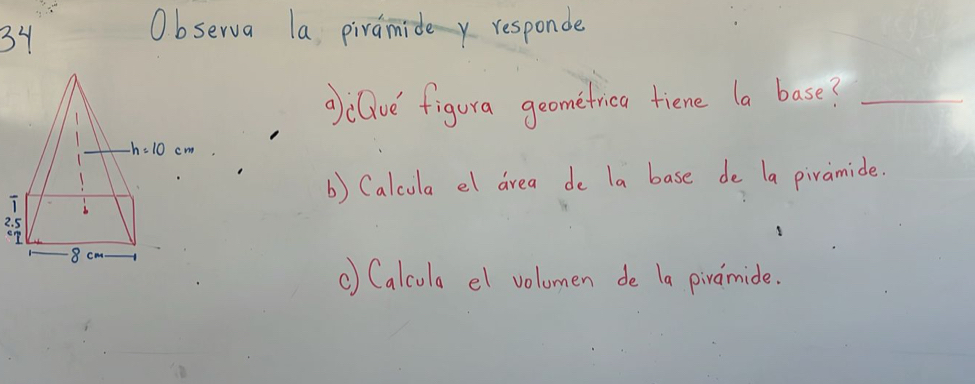 34 Observa la pirámide y responde
a)¿Qué figura geométrica tiene la base? ______
h=10 cm
b) Calcula el área de la base de la pirámide.
2.5
cm
8 cm
c) Calcula el volumen de la pirámide.